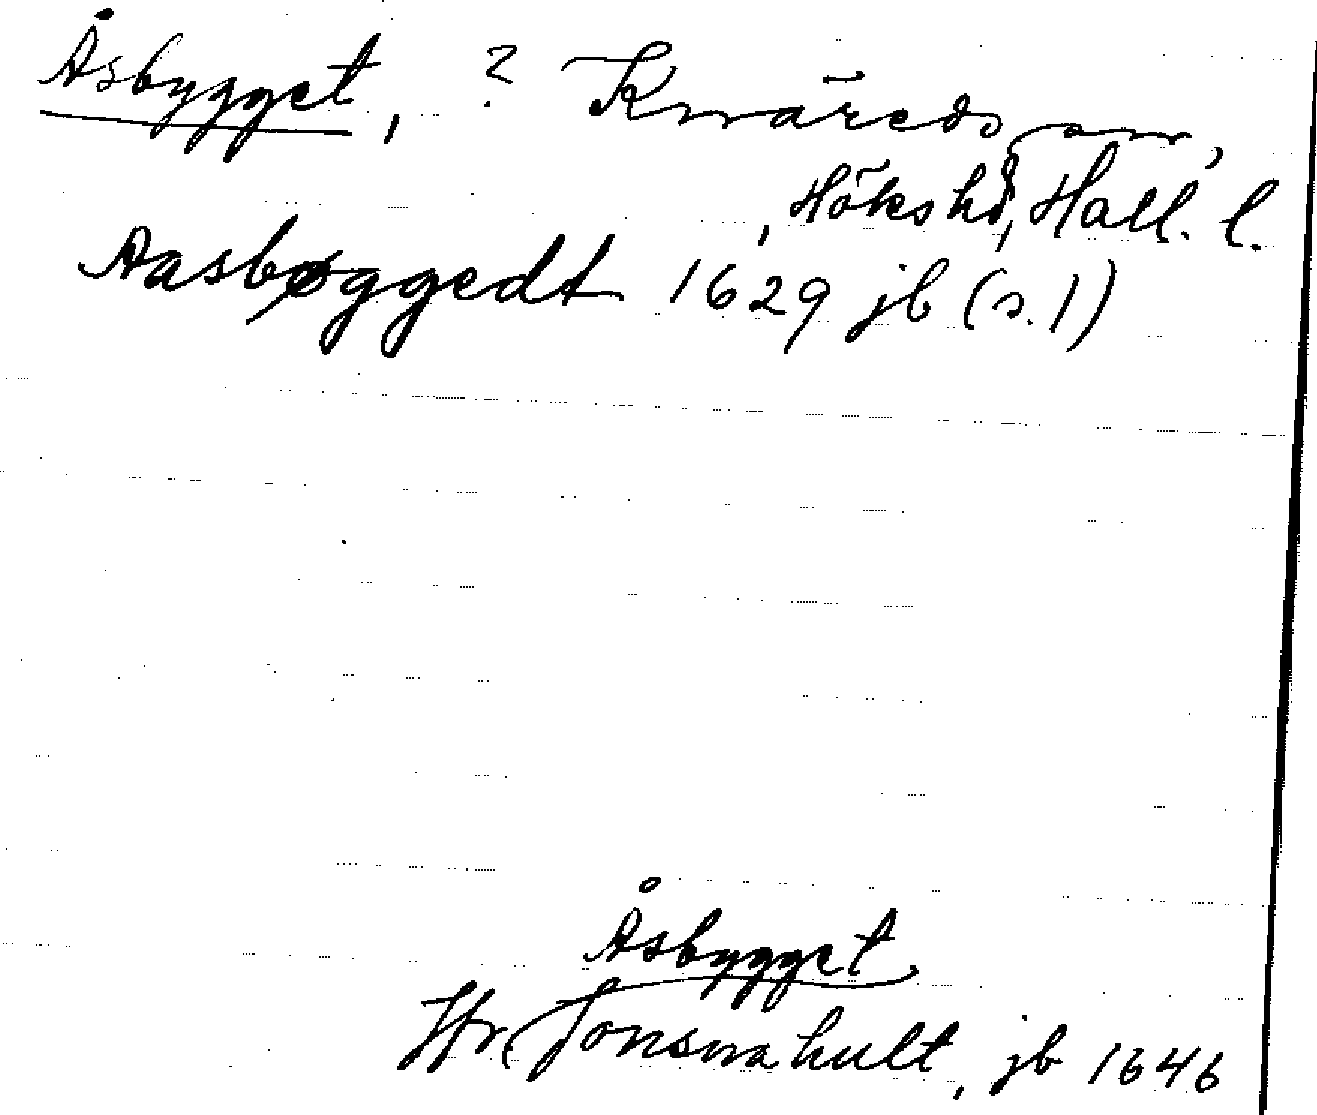 Åsbygget, ? Knäreds sn,
, Höks hd, Hall. l.
Aasbøggedt 1629 jb (s. 1)
Åsbygget
Hr Jonsnahult, jb 1646